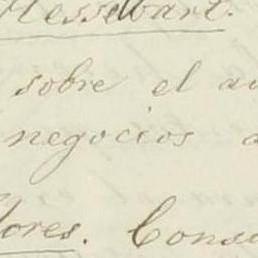 Hesselbart.
sobre el
negocios
ores. Cons